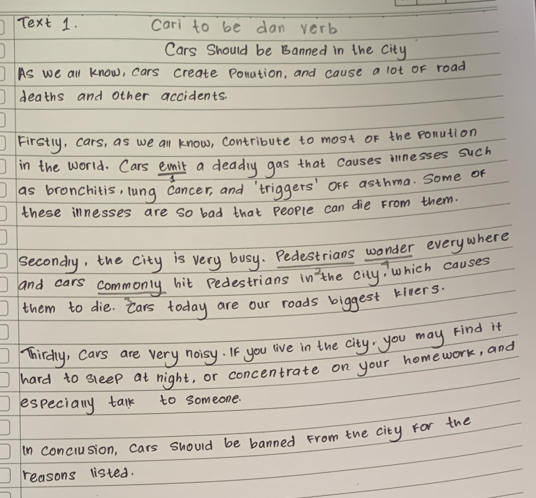 Text 1.
Cari to be dan verb
Cars Should be Banned in the City
As we all know, cars create Pollution, and cause a lot of road
deaths and other accidents.
Firstly, cars, as we all know, contribute to most of the Pollution
in the world. Cars emit a deadly gas that causes illnesses such
as bronchitis, lung cancer, and 'triggers' off asthma. Some of
these illnesses are so bad that people can die from them.
Secondly, the city is very busy. Pedestrians wander everywhere
and cars commonly hit pedestrians in the city, which causes
them to die. Cars today are our roads biggest killers.
Thirdly, Cars are very noisy. If you live in the city, you may find it
hard to sleep at night, or concentrate on your homework, and
especially talk to someone.
In conclusion, cars should be banned from the city for the
reasons listed.